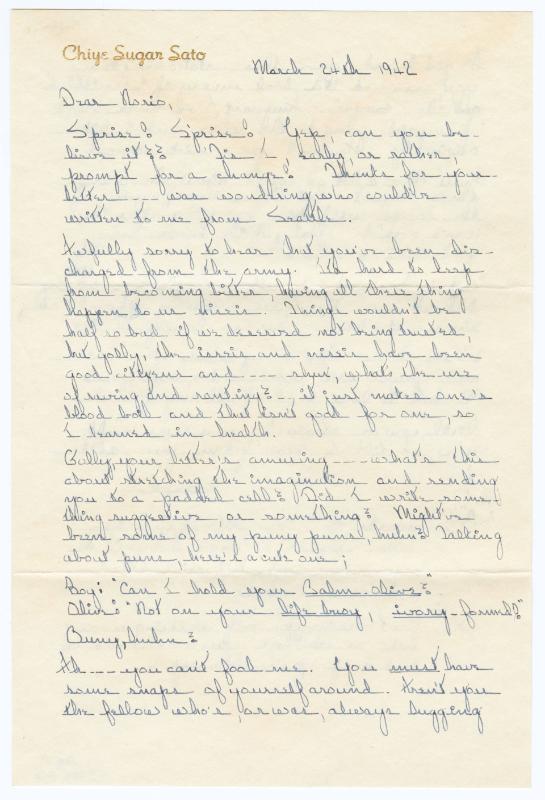 Chiye Sugar Sato
March 24th 1942
Dear Norio,
S'prise! S'prise! Yep, can you be-
lieve it?? 'Tis I, early, or rather,
prompt for a change! Thanks for your
letter --- was wondering who could've
written to me from Seattle.
Awfully sorry to hear that you've been dis-
charged from the army. It's hard to keep
from becoming bitter, having all these thing
happen to us niseis. Things wouldn't be
half so bad if we deserved not being trusted,
but golly, the isseis and niseis have been
good citizens and --- shux, what's the use
of raving and ranting? - it just makes one's
blood boil and that isn't good for one, so
I learned in health.
Golly, your letter's amusing --- what's this
about stretching the imagination and sending
you to a padded cell? Did I write some
thing suggestive, or something? Might've
been some of my puny puns, huhn? Talking
about puns, here's a cute one;
Boy: "Can I hold your Palm-olive?"
Olive: "Not on your life buoy, ivory-formed?"
Puny, huhn?
Ah --- you can't fool me. You must have
some snaps of yourself around. Aren't you
the fellow who's, or was, always lugging